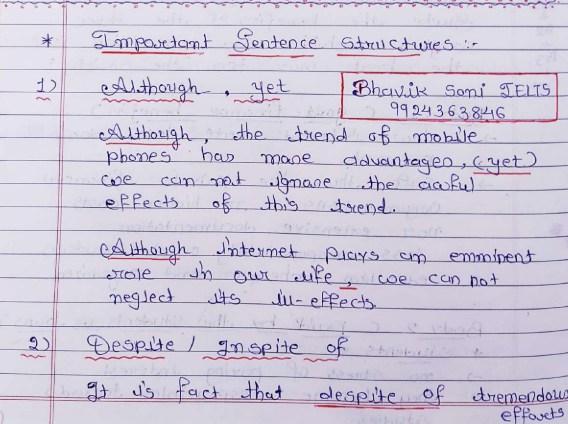 * Important Sentence structures :-
1) Although , yet
Bhavik Soni IELTS
9924363846
Although, the trend of mobile
phones has more advantages, (yet)
we can not ignore the awful
effects of this trend.
Although internet plays an emminent
role in our life, we can not
neglect its ill-effects.
2) Despite / Inspite of
It is fact that despite of tremendous
efforts